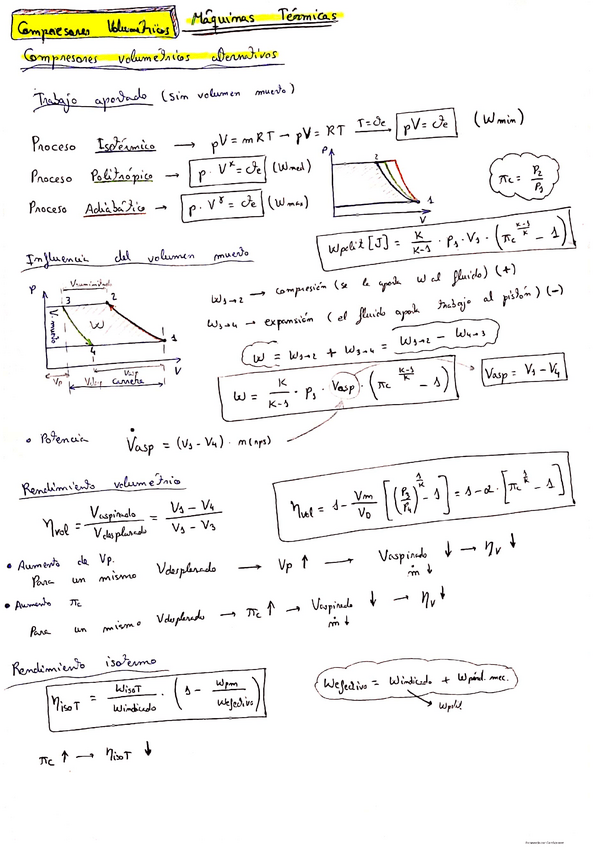 Compresores Volumétricos Máquinas Térmicas
Compresores volumétricos alternativos
Trabajo aportado (sin volumen muerto)
Proceso Isotérmico → pV = mRT → pV = RT T=cte → pV = cte (Wmin)
Proceso Politrópico → p · V^k = cte (Wmed)
Proceso Adiabático → p · V^γ = cte (Wmax)
P
2
1
V
πc = P2/P1
Wpolit [J] = K/(K-1) · P1 · V1 · (πc^((K-1)/K) - 1)
Influencia del volumen muerto
P
3
2
W
V. muerto
4
1
V
Vp
carrera
W1→2 → compresión (se le aporta W al fluido) (+)
W3→4 → expansión (el fluido aporta trabajo al pistón) (-)
W = W1→2 + W3→4 = W1→2 - W4→3
W = K/(K-1) · P1 · Vasp · (πc^((K-1)/K) - 1)
Vasp = V1 - V4
• Potencia V̇asp = (V1 - V4) · n(rps)
Rendimiento volumétrico
ηvol = Vaspirado/Vdesplazado = (V1 - V4)/(V1 - V3)
ηvol = 1 - Vm/VD [(P3/P4)^(1/K) - 1] = 1 - α · [πc^(1/K) - 1]
• Aumento de Vp.
Para un mismo Vdesplazado → Vp ↑ → Vaspirado ↓ → ηv ↓
ṁ ↓
• Aumento πc
Para un mismo Vdesplazado → πc ↑ → Vaspirado ↓ → ηv ↓
ṁ ↓
Rendimiento isotermo
ηisoT = WisoT/Windicado · (1 - Wpm/Wefectivo)
Wefectivo = Windicado + Wpérd. mec.
Wpolit
πc ↑ → ηisoT ↓